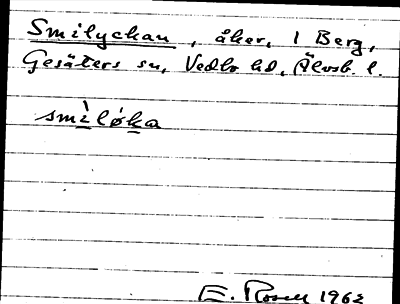 Smilyckan, åker, 1 Berg,
Gesäters sn, Vedbo hd, Älvsb. l.
smìløka
E. Rosell 1962